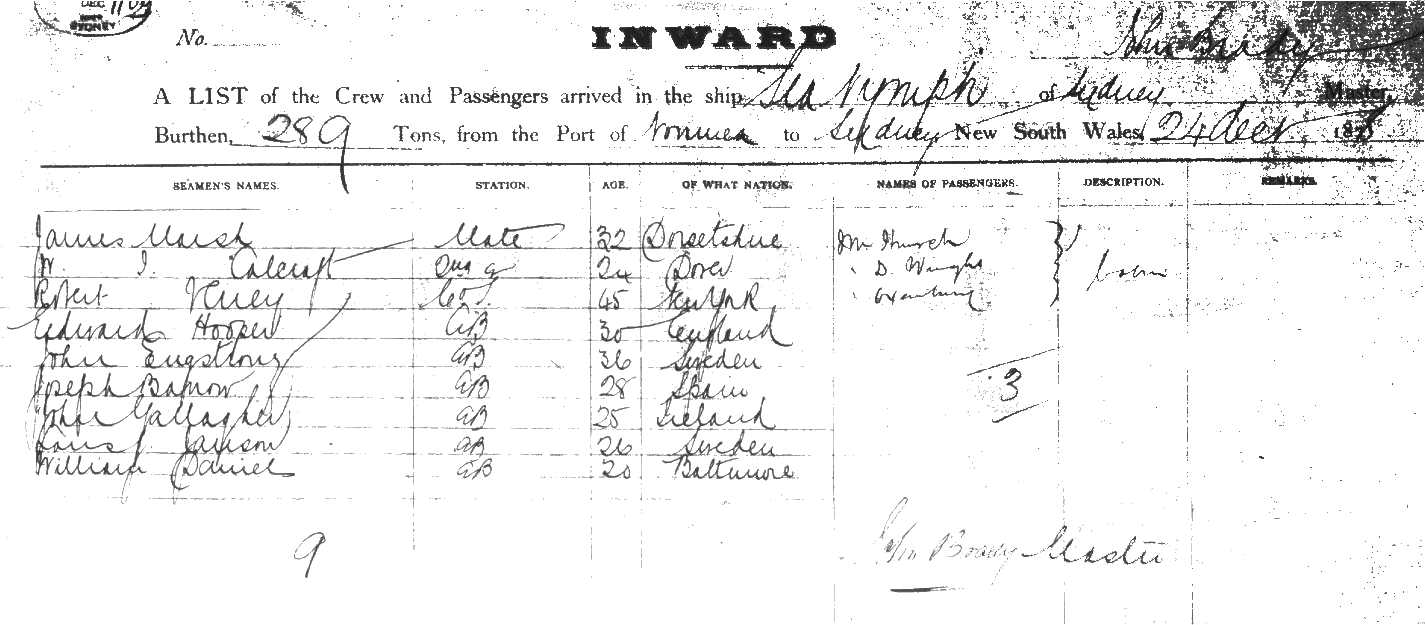 SYDNEY
No.
INWARD
John Brady
A LIST of the Crew and Passengers arrived in the ship Sea Nymph of Sydney Master,
Burthen, 289 Tons, from the Port of Noumea to Sydney New South Wales, 24 Decr 187
SEAMEN'S NAMES. STATION. AGE. OF WHAT NATION. NAMES OF PASSENGERS. DESCRIPTION. REMARKS.
James Marsh Mate 32 Dorsetshire Mr
W. I. Calcraft 24 Dover " D. Wright Cabin
Robert 45 New York "
Edward Hooper AB 30 England
John Engstrong AB 36 Sweden
Joseph Barrow AB 28 Spain 3
John Gallagher AB 25 Ireland
Louis Janson AB 26 Sweden
William Daniel AB 20 Baltimore
9
John Brady Master